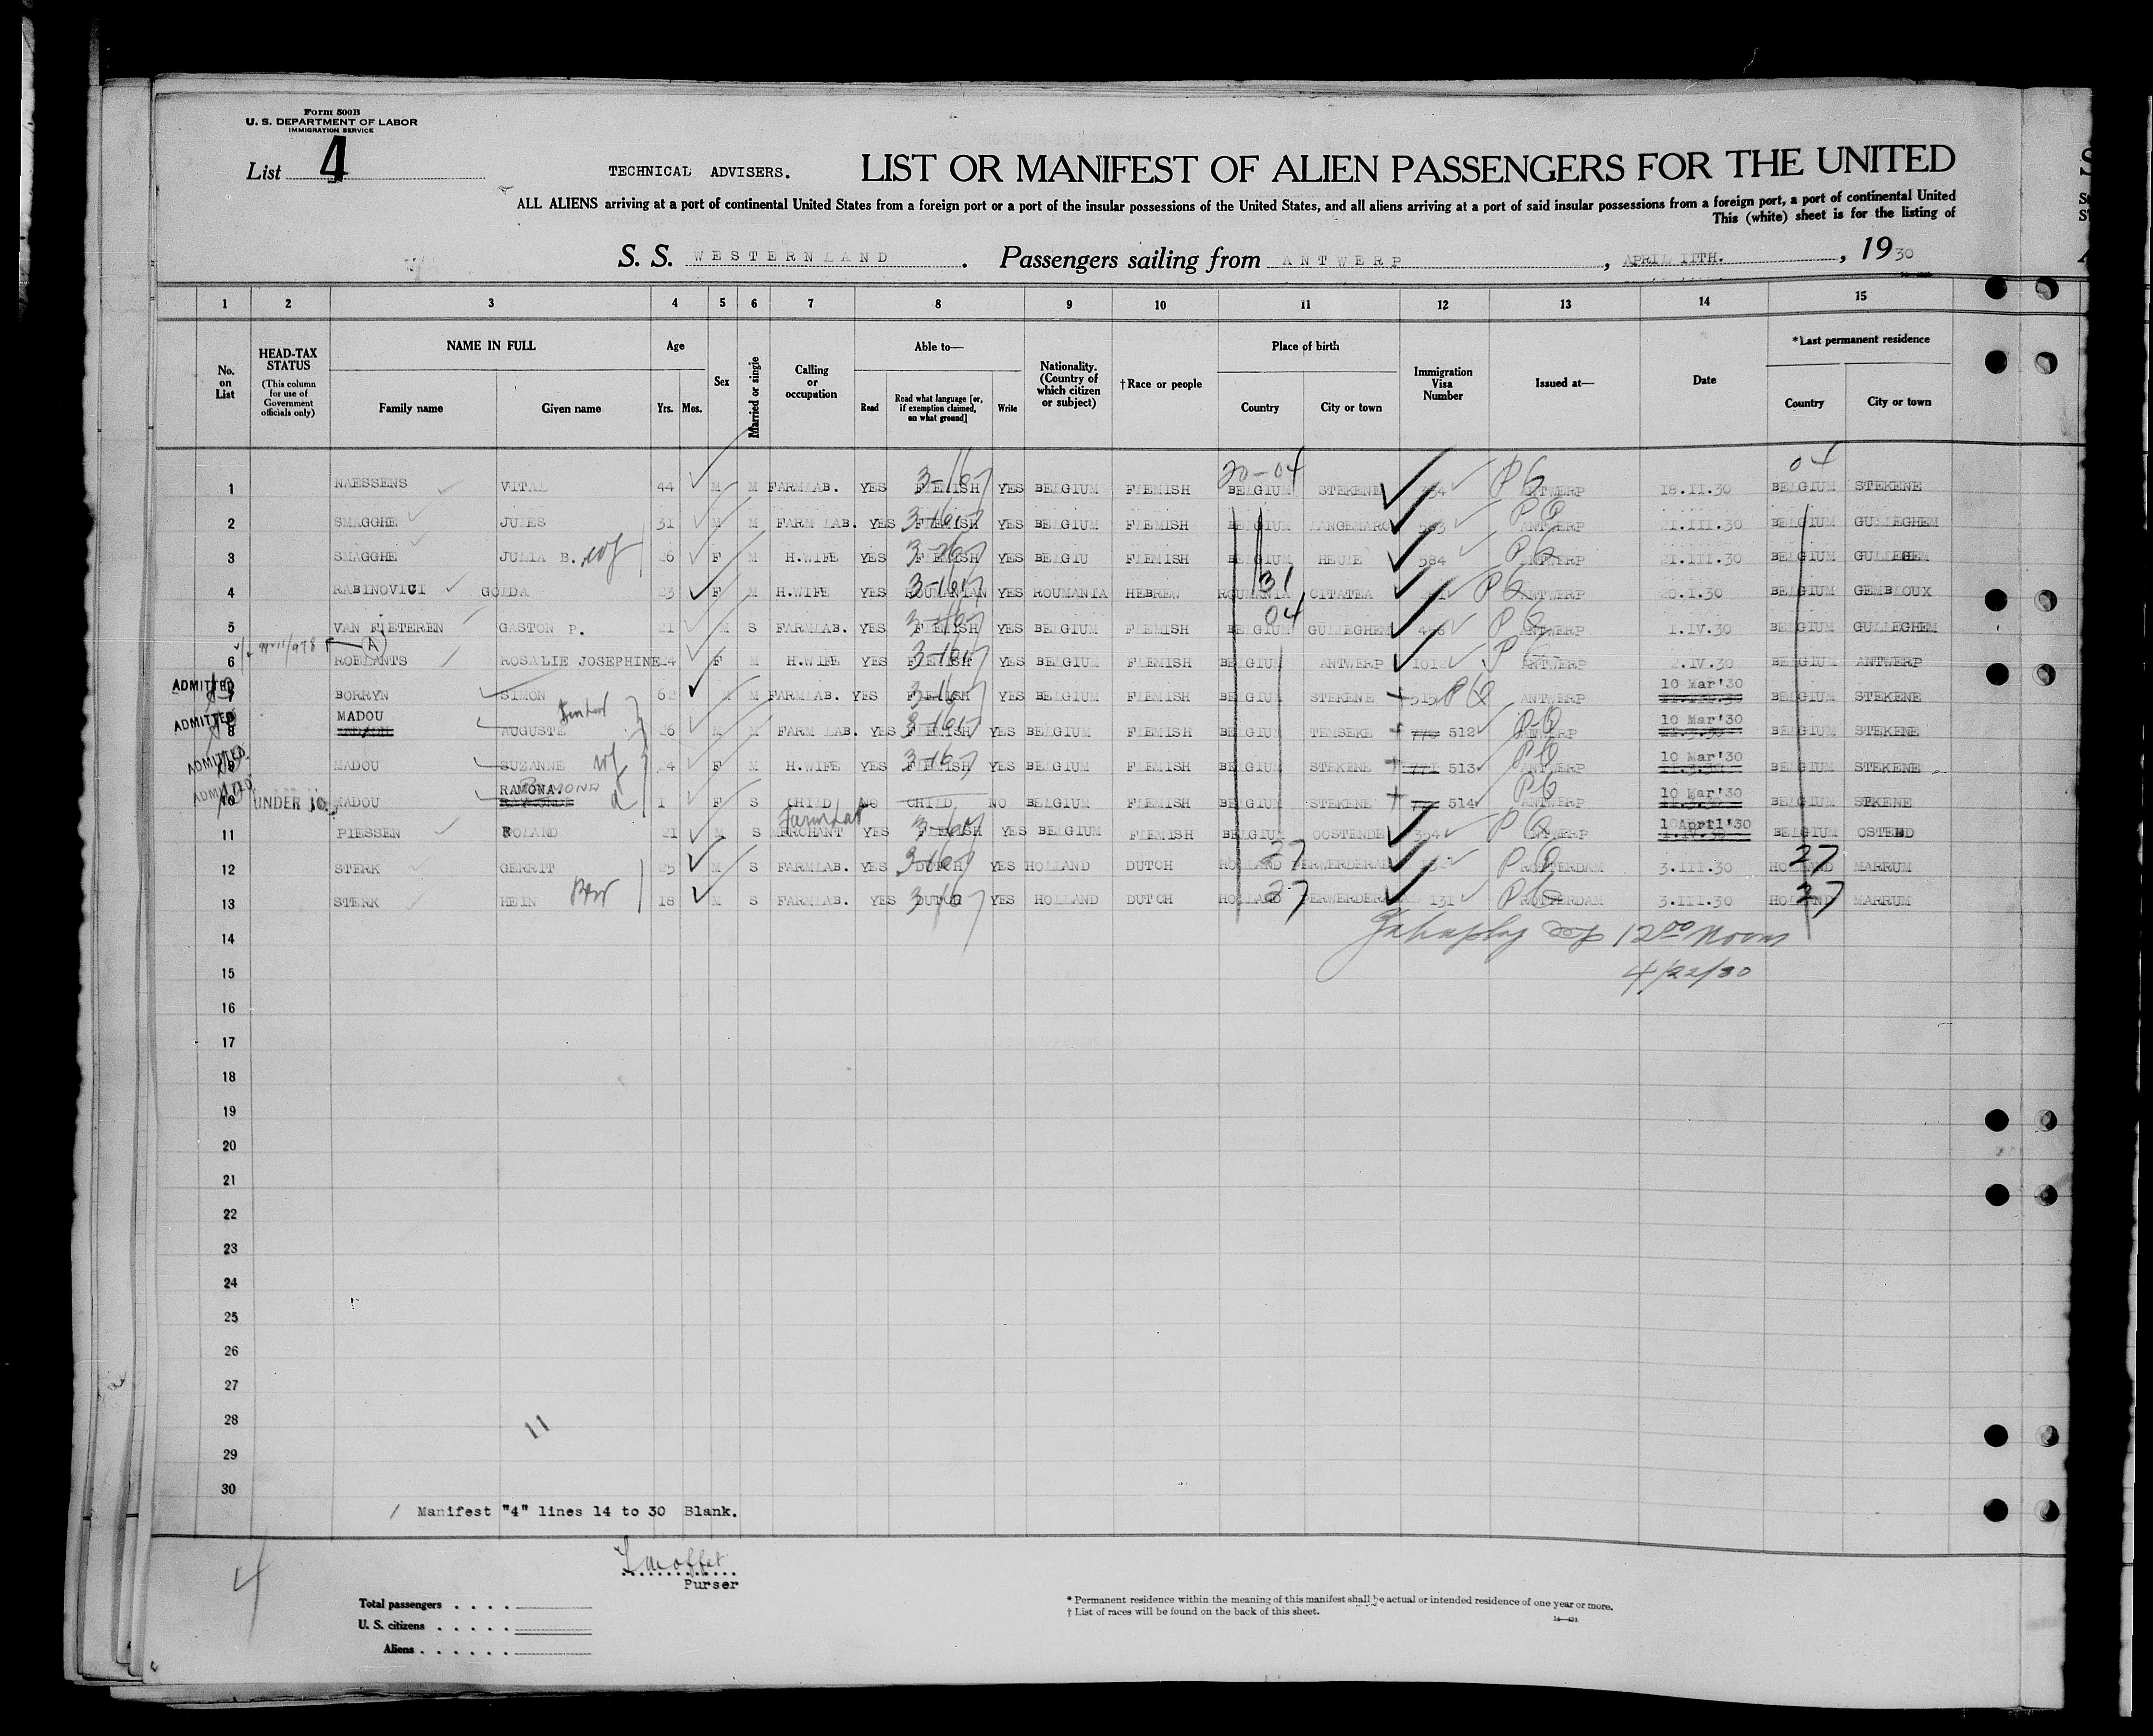 Form 500B
U. S. DEPARTMENT OF LABOR
IMMIGRATION SERVICE
List 4
TECHNICAL ADVISERS.
LIST OR MANIFEST OF ALIEN PASSENGERS FOR THE UNITED
ALL ALIENS arriving at a port of continental United States from a foreign port or a port of the insular possessions of the United States, and all aliens arriving at a port of said insular possessions from a foreign port, a port of continental United
This (white) sheet is for the listing of
S. S. WESTERNLAND. Passengers sailing from ANTWERP, APRIL 11TH., 1930
1 2 3 4 5 6 7 8 9 10 11 12 13 14 15
No. on List
HEAD-TAX STATUS (This column for use of Government officials only)
NAME IN FULL
Family name Given name
Age
Yrs. Mos.
Sex
Married or single
Calling or occupation
Able to—
Read Read what language [or, if exemption claimed, on what ground] Write
Nationality. (Country of which citizen or subject)
†Race or people
Place of birth
Country City or town
Immigration Visa Number
Issued at—
Date
*Last permanent residence
Country City or town
20-04 04
1 NAESSENS VITAL 44 M M FARMLAB. YES FLEMISH YES BELGIUM FLEMISH BELGIUM STEKENE ANTWERP 18.II.30 BELGIUM STEKENE
2 SMAGGHE JULES 31 M M FARM LAB. YES FLEMISH YES BELGIUM FLEMISH BELGIUM LANGEMARC ANTWERP 21.III.30 BELGIUM GULLEGHEM
3 SMAGGHE JULIA B. wf 26 F M H.WIFE YES FLEMISH YES BELGIU FLEMISH BELGIUM HEULE 584 ANTWERP 21.III.30 BELGIUM GULLEGHEM
4 RABINOVICI GOLDA 23 F M H.WIFE YES ROUMANIAN YES ROUMANIA HEBREW ROUMANIA 31 CITATEA ANTWERP 20.1.30 BELGIUM GEMBLOUX
5 VAN FLETEREN GASTON P. 21 M S FARMLAB. YES FLEMISH YES BELGIUM FLEMISH BELGIUM 04 GULLEGHEM ANTWERP 1.IV.30 BELGIUM GULLEGHEM
6 ROELANTS ROSALIE JOSEPHINE F M H.WIFE YES FLEMISH YES BELGIUM FLEMISH BELGIUM ANTWERP ANTWERP 2.IV.30 BELGIUM ANTWERP
ADMITTED 7 BORRYN SIMON 62 M M FARMLAB. YES FLEMISH YES BELGIUM FLEMISH BELGIUM STEKENE 515 ANTWERP 10 Mar'30 BELGIUM STEKENE
ADMITTED 8 MADOU AUGUSTE 26 M M FARM LAB. YES FLEMISH YES BELGIUM FLEMISH BELGIUM TEMSEKE 512 ANTWERP 10 Mar'30 BELGIUM STEKENE
ADMITTED 9 MADOU SUZANNE wf 24 F M H.WIFE YES FLEMISH YES BELGIUM FLEMISH BELGIUM STEKENE 771 513 ANTWERP 10 Mar'30 BELGIUM STEKENE
ADMITTED 10 UNDER 16. MADOU RAMONA. 1 F S CHILD NO CHILD NO BELGIUM FLEMISH BELGIUM STEKENE 514 10 Mar'30 BELGIUM STEKENE
11 PIESSEN ROLAND 21 M S MERCHANT Farm Lab YES FLEMISH YES BELGIUM FLEMISH BELGIUM OOSTENDE 354 ANTWERP 1 April'30 BELGIUM OSTEND
12 STERK GERRIT 25 M S FARMLAB. YES DUTCH YES HOLLAND DUTCH HOLLAND 27 ROTTERDAM 3.III.30 HOLLAND 27 MARRUM
13 STERK HEIN 18 M S FARMLAB. YES DUTCH YES HOLLAND DUTCH HOLLAND 27 131 ROTTERDAM 3.III.30 HOLLAND 27 MARRUM
14 12 00 noon
15 4/22/30
16
17
18
19
20
21
22
23
24
25
26
27
28 11
29
30
/ Manifest "4" lines 14 to 30 Blank.
Purser
4
Total passengers
U. S. citizens
Aliens
* Permanent residence within the meaning of this manifest shall be actual or intended residence of one year or more.
† List of races will be found on the back of this sheet.